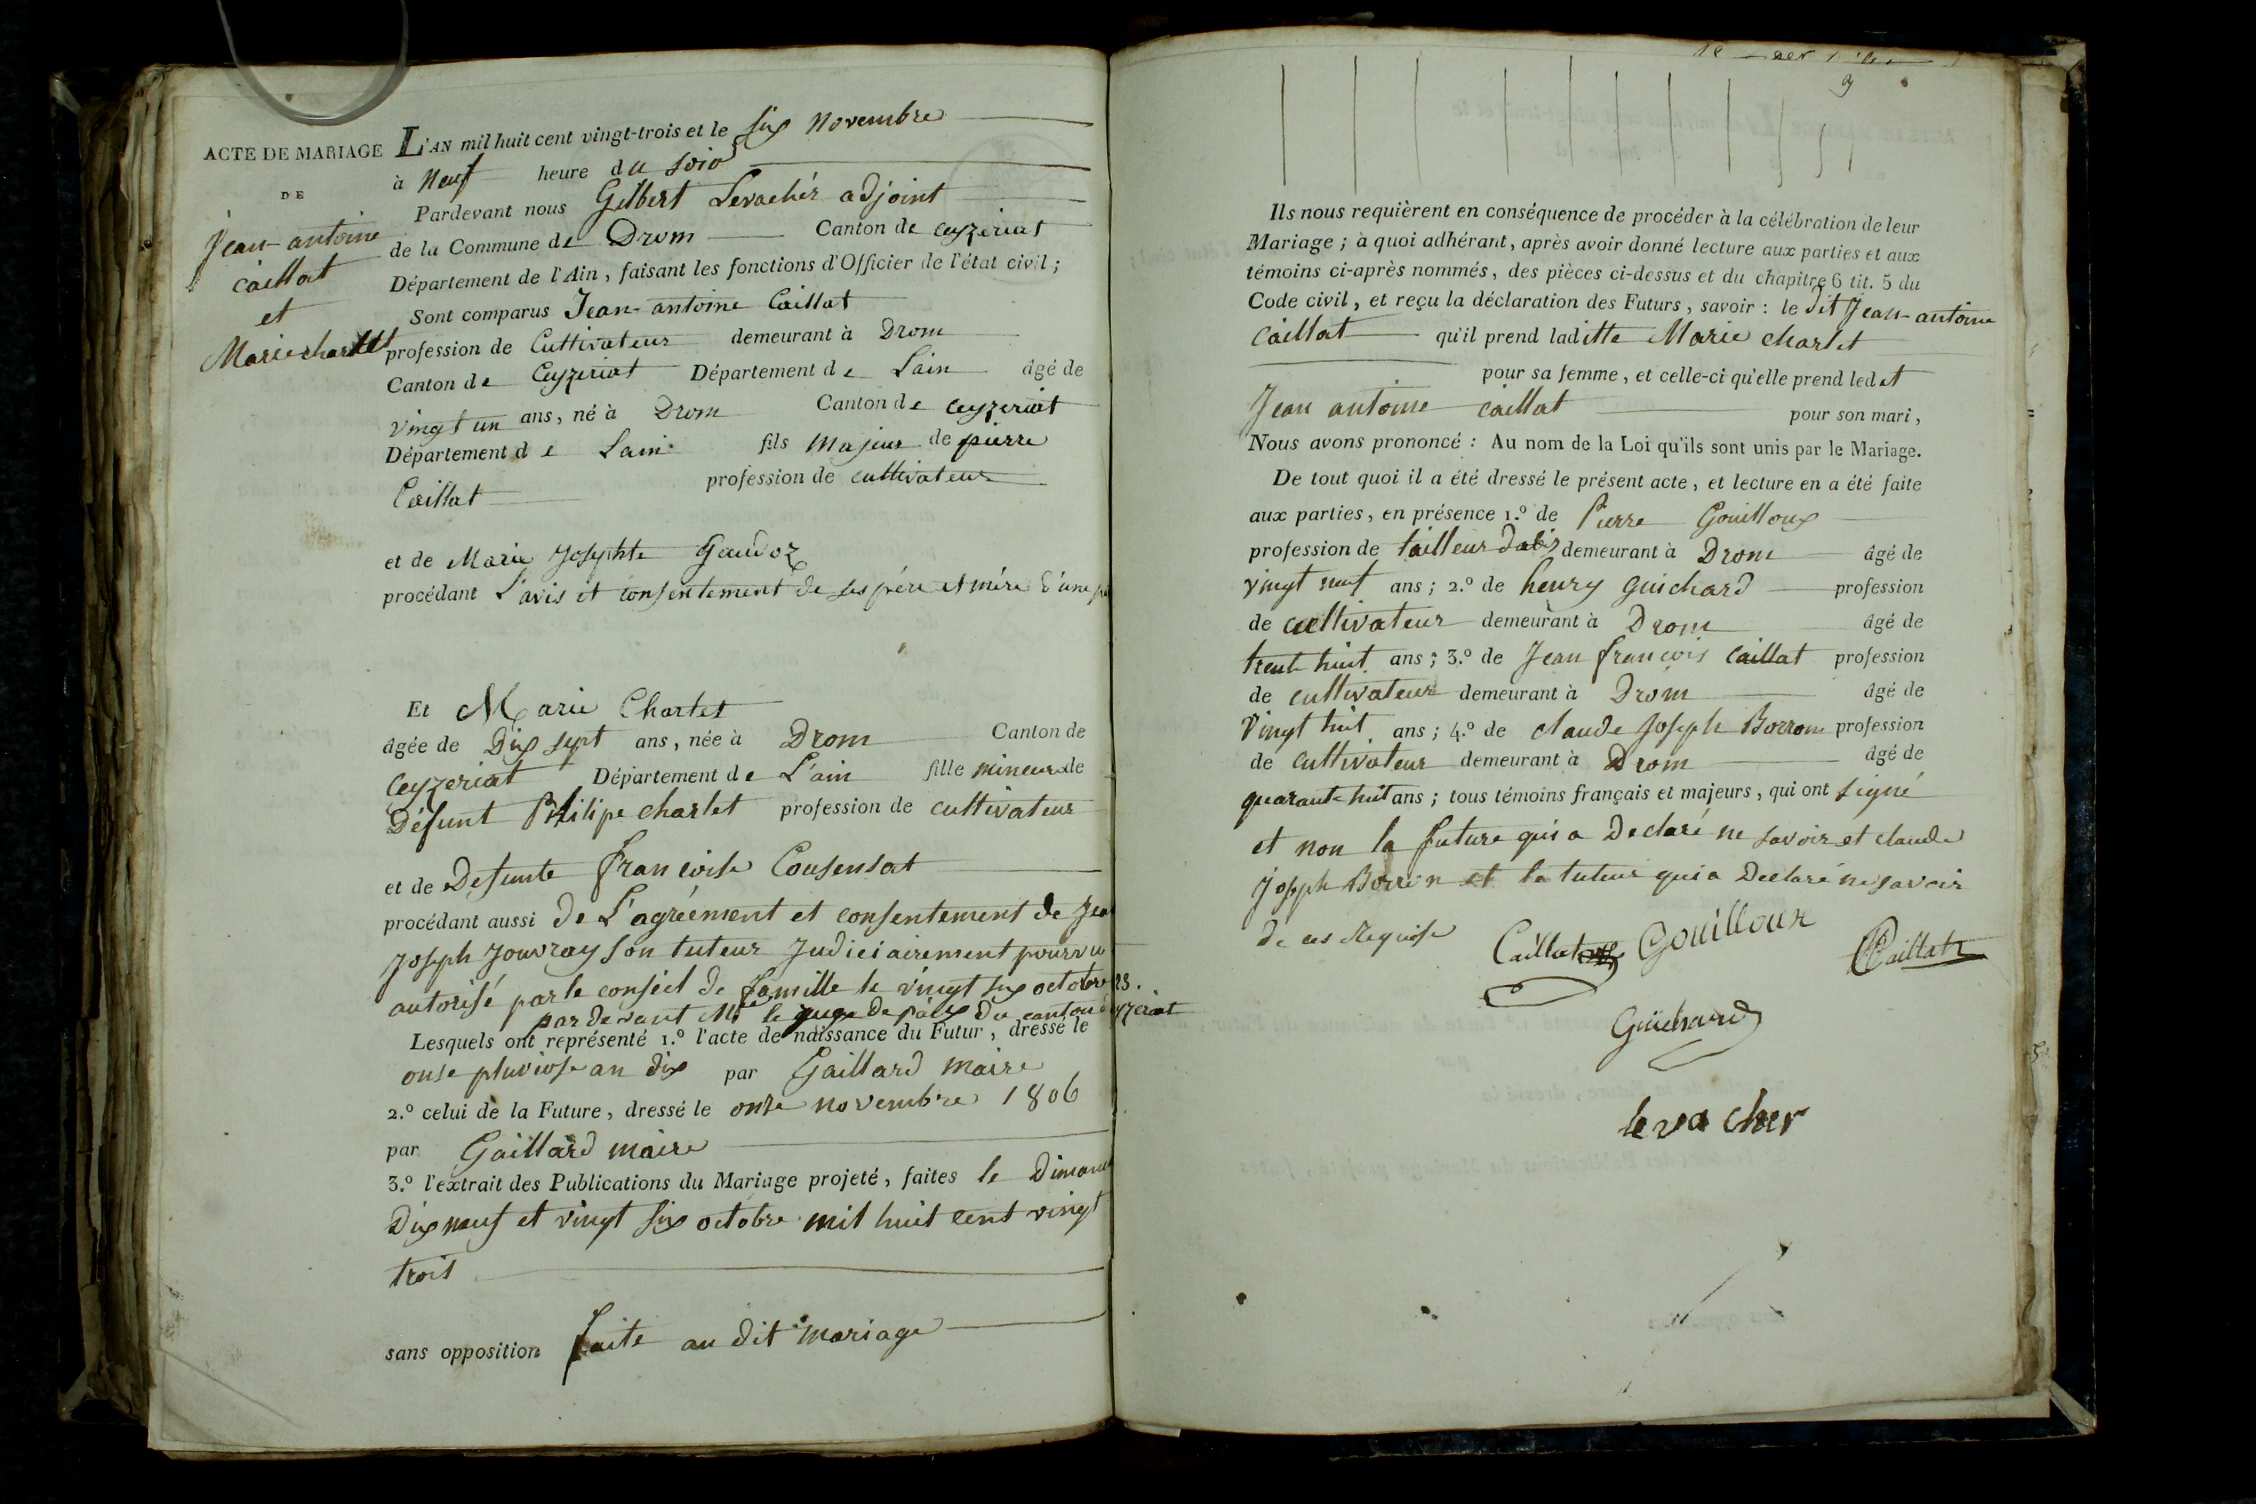 ACTE DE MARIAGE
DE
Jean-antoine
Caillat
et
Marie charlet
L'AN mil huit cent vingt-trois et le six Novembre
à Neuf heure du soir
Pardevant nous Gilbert Levachér adjoint
de la Commune de Drom Canton de Ceyzeriat
Département de l'Ain, faisant les fonctions d'Officier de l'état civil;
Sont comparus Jean-antoine Caillat
profession de Cultivateur demeurant à Drom
Canton de Ceyzeriat Département de Lain âgé de
vingt un ans, né à Drom Canton de Ceyzeriat
Département de Lain fils majeur de pierre
Caillat profession de cultivateur
et de Marie Josephte Gaudoz
procédant L'avis et consentement de ses pére et mére d'une
Et Marie Charlet
âgée de Dix sept ans, née à Drom Canton de
Ceyzeriat Département de L'ain fille mineure de
Défunt Philipe charlet profession de cultivateur
et de Defunte françoise Consensat
procédant aussi de L'agréement et consentement de
Joseph Jouvray son tuteur Judiciairement pourvu
autorisé par le conseil de famille le vingt six octobre 23.
par devant Mr le juge de paix du canton Ceyzeriat
Lesquels ont représenté 1.º l'acte de naissance du Futur, dressé le
onse pluviose an dix par Gaillard maire
2.º celui de la Future, dressé le onse novembre 1806
par Gaillard maire
3.º l'extrait des Publications du Mariage projeté, faites le Dimanche
Dix neuf et vingt six octobre mil huit cent vingt
trois
sans opposition faite au dit mariage
Ils nous requièrent en conséquence de procéder à la célébration de leur
Mariage; à quoi adhérant, après avoir donné lecture aux parties et aux
témoins ci-après nommés, des pièces ci-dessus et du chapitre 6 tit. 5 du
Code civil, et reçu la déclaration des Futurs, savoir: le dit Jean-antoine
Caillat qu'il prend laditte Marie charlet
pour sa femme, et celle-ci qu'elle prend ledit
Jean antoine caillat pour son mari,
Nous avons prononcé: Au nom de la Loi qu'ils sont unis par le Mariage.
De tout quoi il a été dressé le présent acte, et lecture en a été faite
aux parties, en présence 1.º de Pierre Gouilloux
profession de tailleur dabis demeurant à Drom âgé de
vingt neuf ans; 2.º de henry guichard profession
de cultivateur demeurant à Drom âgé de
trente huit ans; 3.º de Jean françois Caillat profession
de cultivateur demeurant à Drom âgé de
vingt huit ans; 4.º de claude Joseph Borron profession
de cultivateur demeurant à Drom âgé de
quarante huit ans; tous témoins français et majeurs, qui ont signé
et non la future qui a Declaré ne savoir et claude
Joseph Borron et le tuteur qui a Declaré ne savoir
de ces Requise
Caillat Gouilloux Caillat
Guichard
levacher